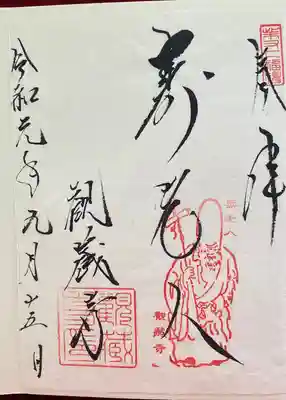 奉拝
寿老人
観蔵寺
令和元年九月十五日
寿老人
観蔵寺